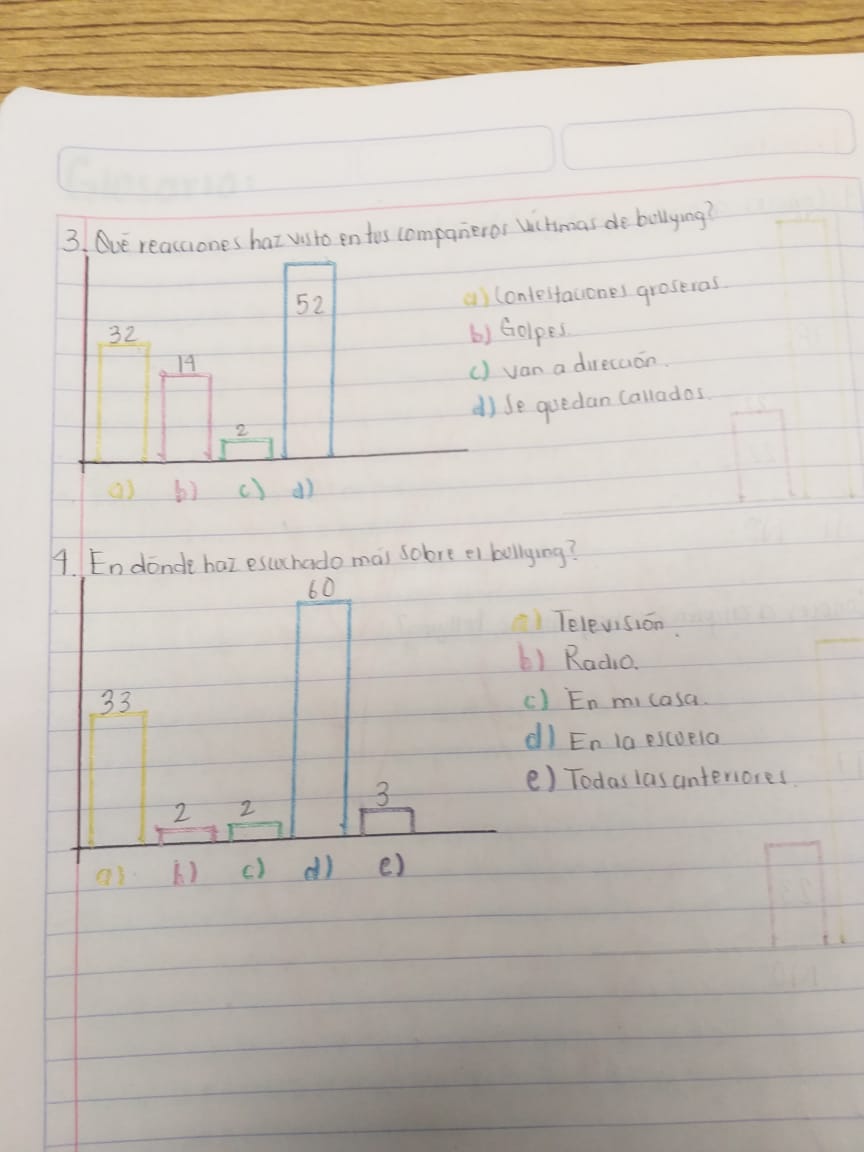 3. Qué reacciones haz visto en tus compañeros víctimas de bullying?
32
14
2
52
a) Contestaciones groseras.
b) Golpes
c) van a dirección.
d) Se quedan callados.
a) b) c) d)
4. En dónde haz escuchado más sobre el bullying?
33
2
2
60
3
a) Televisión.
b) Radio.
c) En mi casa.
d) En la escuela
e) Todas las anteriores.
a) b) c) d) e)